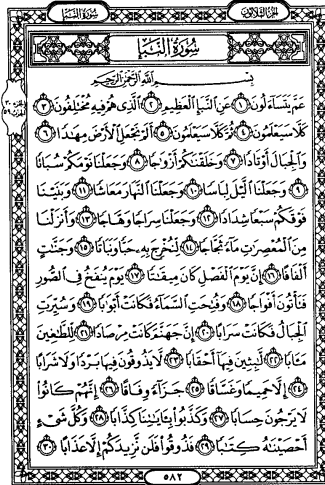 سُورَةُ النَّبَإِ
الجُزءُ الثَّلَاثُونَ
سُورَةُ النَّبَإِ
بِسْمِ اللَّهِ الرَّحْمَٰنِ الرَّحِيمِ
عَمَّ يَتَسَاءَلُونَ ١ عَنِ النَّبَإِ الْعَظِيمِ ٢ الَّذِي هُمْ فِيهِ مُخْتَلِفُونَ ٣
كَلَّا سَيَعْلَمُونَ ٤ ثُمَّ كَلَّا سَيَعْلَمُونَ ٥ أَلَمْ نَجْعَلِ الْأَرْضَ مِهَٰدًا ٦
وَالْجِبَالَ أَوْتَادًا ٧ وَخَلَقْنَٰكُمْ أَزْوَٰجًا ٨ وَجَعَلْنَا نَوْمَكُمْ سُبَاتًا
٩ وَجَعَلْنَا الَّيْلَ لِبَاسًا ١٠ وَجَعَلْنَا النَّهَارَ مَعَاشًا ١١ وَبَنَيْنَا
فَوْقَكُمْ سَبْعًا شِدَادًا ١٢ وَجَعَلْنَا سِرَاجًا وَهَّاجًا ١٣ وَأَنزَلْنَا
مِنَ الْمُعْصِرَٰتِ مَاءً ثَجَّاجًا ١٤ لِّنُخْرِجَ بِهِ حَبًّا وَنَبَاتًا ١٥ وَجَنَّٰتٍ
أَلْفَافًا ١٦ إِنَّ يَوْمَ الْفَصْلِ كَانَ مِيقَٰتًا ١٧ يَوْمَ يُنفَخُ فِي الصُّورِ
فَتَأْتُونَ أَفْوَاجًا ١٨ وَفُتِحَتِ السَّمَاءُ فَكَانَتْ أَبْوَٰبًا ١٩ وَسُيِّرَتِ
الْجِبَالُ فَكَانَتْ سَرَابًا ٢٠ إِنَّ جَهَنَّمَ كَانَتْ مِرْصَادًا ٢١ لِّلطَّٰغِينَ
مَـَٔابًا ٢٢ لَّٰبِثِينَ فِيهَا أَحْقَابًا ٢٣ لَّا يَذُوقُونَ فِيهَا بَرْدًا وَلَا شَرَابًا
٢٤ إِلَّا حَمِيمًا وَغَسَّاقًا ٢٥ جَزَاءً وِفَاقًا ٢٦ إِنَّهُمْ كَانُوا
لَا يَرْجُونَ حِسَابًا ٢٧ وَكَذَّبُوا بِـَٔايَٰتِنَا كِذَّابًا ٢٨ وَكُلَّ شَيْءٍ
أَحْصَيْنَٰهُ كِتَٰبًا ٢٩ فَذُوقُوا فَلَن نَّزِيدَكُمْ إِلَّا عَذَابًا ٣٠
٥٨٢